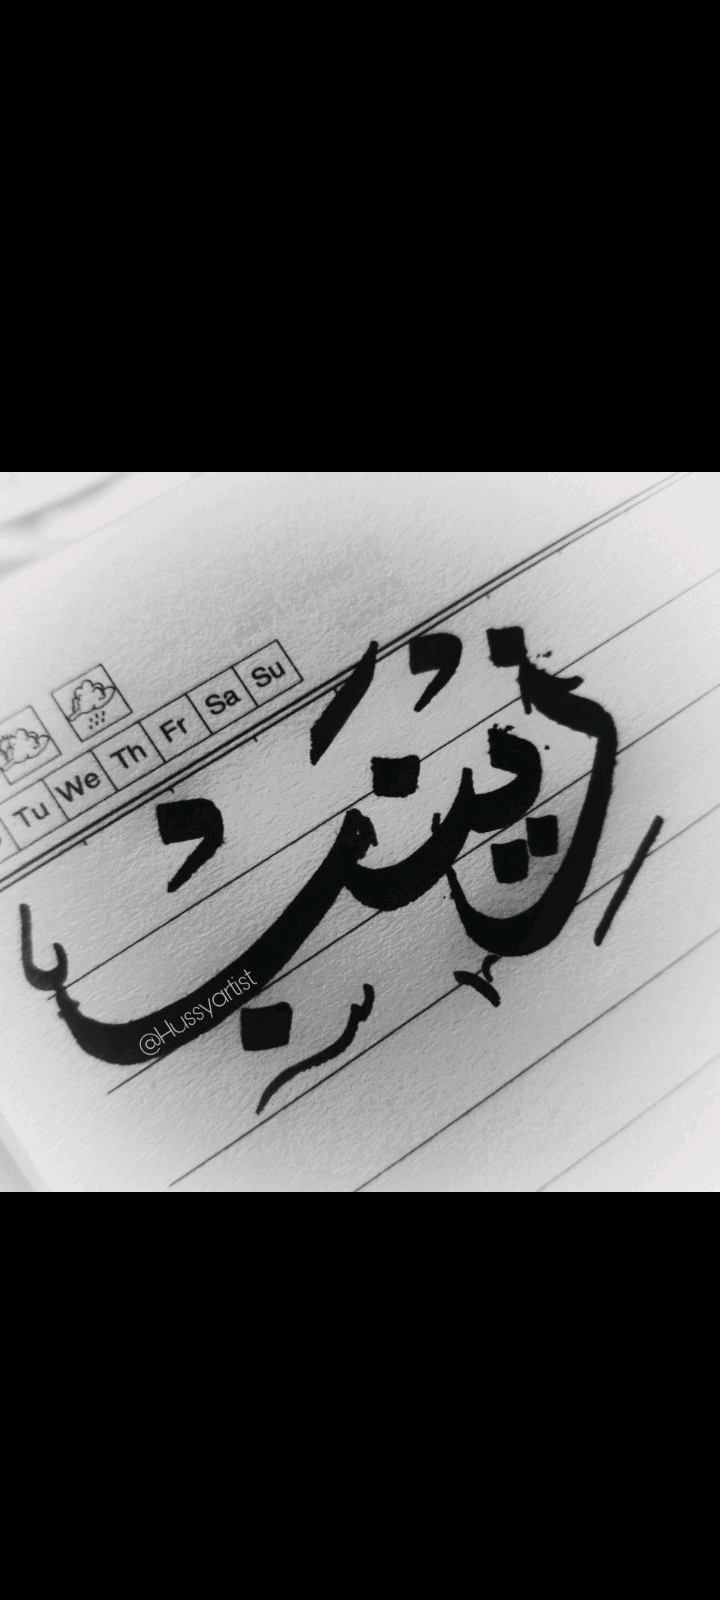 Tu We Th Fr Sa Su
زینب
@Hussyartist